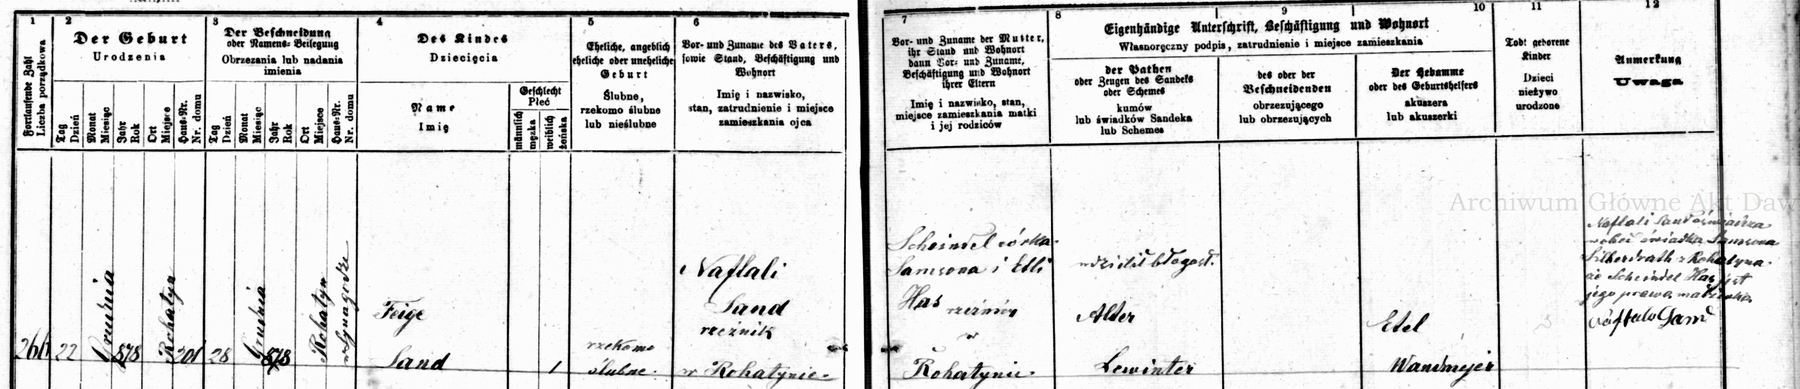 1
2
Der Geburt
Urodzenia
3
Der Beschneidung
oder Namens-Beilegung
Obrzezania lub nadania
imienia
4
Des Kindes
Dziecięcia
5
Eheliche, angeblich
eheliche oder uneheliche
Geburt
Ślubne,
rzekomo ślubne
lub nieślubne
6
Vor- und Zuname des Vaters,
sowie Stand, Beschäftigung und
Wohnort
Imię i nazwisko,
stan, zatrudnienie i miejsce
zamieszkania ojca
7
Vor- und Zuname der Mutter,
ihr Stand und Wohnort
dann Vor- und Zuname,
Beschäftigung und Wohnort
ihrer Eltern
Imię i nazwisko, stan,
miejsce zamieszkania matki
i jej rodziców
8
9
10
Eigenhändige Unterschrift, Beschäftigung und Wohnort
Własnoręczny podpis, zatrudnienie i miejsce zamieszkania
der Pathen
oder Zeugen des Sandeks
oder Schemes
kumów
lub świadków Sandeka
lub Schemes
des oder der
Beschneidenden
obrzezującego
lub obrzezujących
Der Hebamme
oder des Geburtshelfers
akuszera
lub akuszerki
11
Todt geborene
Kinder
Dzieci
nieżywo
urodzone
12
Anmerkung
Uwaga
Fortlaufende Zahl
Liczba porządkowa
Tag
Dzień
Monat
Miesiąc
Jahr
Rok
Ort
Miejsce
Haus-Nr.
Nr. domu
Tag
Dzień
Monat
Miesiąc
Jahr
Rok
Ort
Miejsce
Haus-Nr.
Nr. domu
Name
Imię
Geschlecht
Płeć
männlich
męzka
weiblich
żeńska
22
Grudnia
878
Rohatyn
201
28
Grudnia
878
Rohatyn
w Synagodze
Feige
Sand
1
rzekomo
ślubne.
Naftali
Sand
rzeźnik
w Rohatynie.
Scheindel córka
Samsona i Etli
Has rzeźnicy
w
Rohatynie.
udzielił błogosł.
Alter
Lewinter
Etel
Wandmejer
Naftali Sand oświadcza
wobec świadka Samsona
Silberdrath z Rohatyna
że Scheindel Has jest
jego prawą małżonką
Naftali Sand
Archiwum Główne Akt Daw